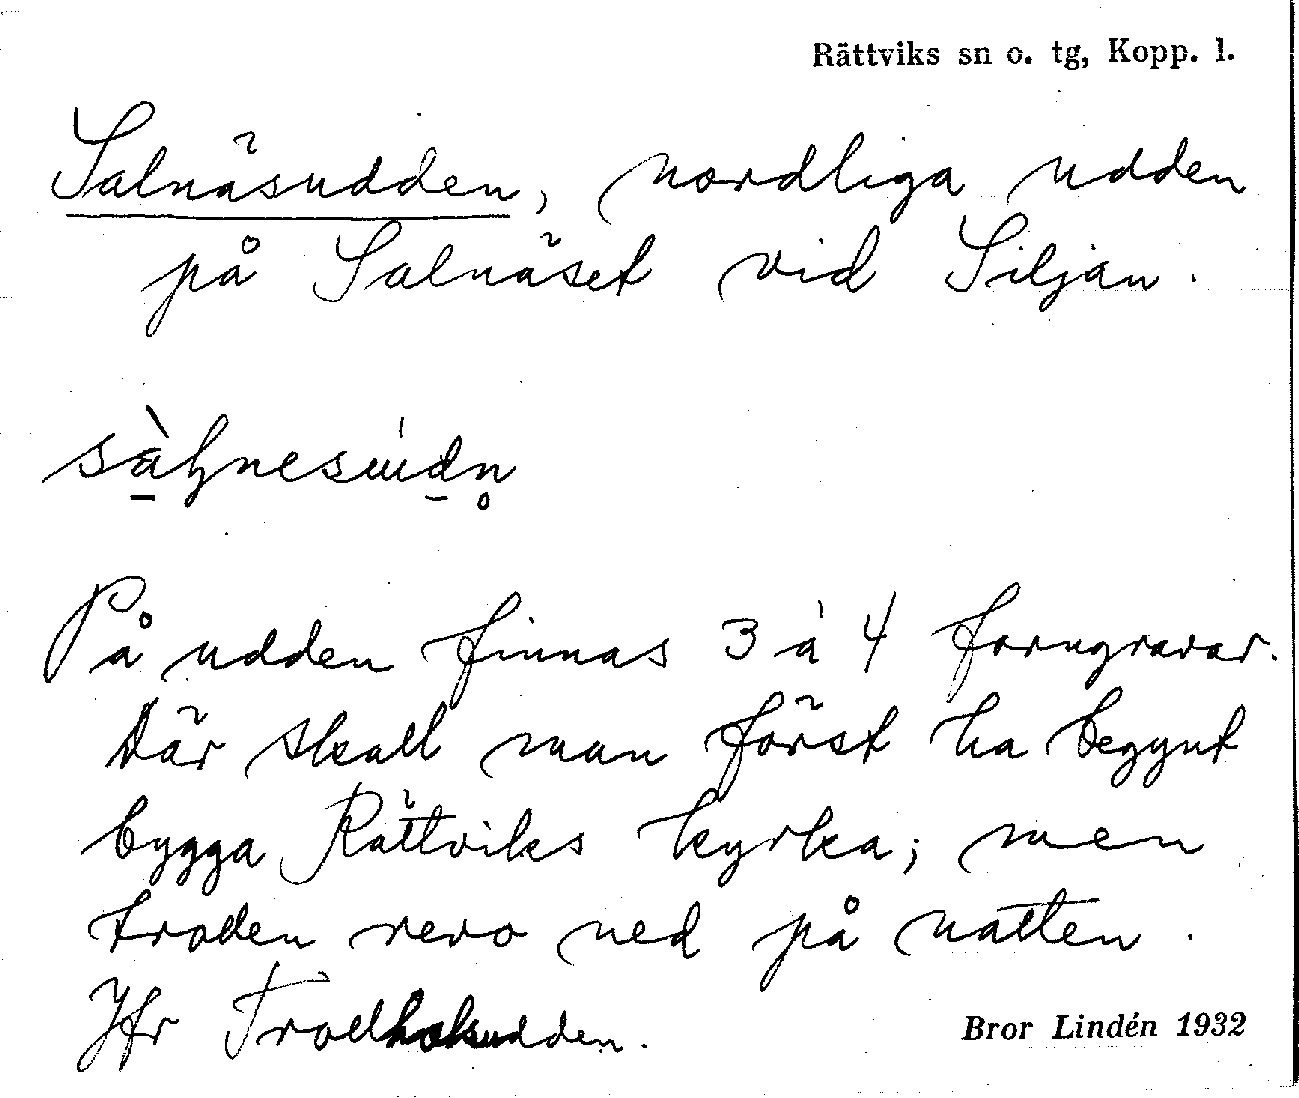 Rättviks sn o. tg, Kopp. l.
Salnäsudden, nordliga udden
på Salnäset vid Siljan.
På udden finnas 3 à 4 forngravar.
Där skall man först ha begynt
bygga Rättviks kyrka; men
troden revo ned på natten.
Jfr Trodholsudden.
Bror Lindén 1932